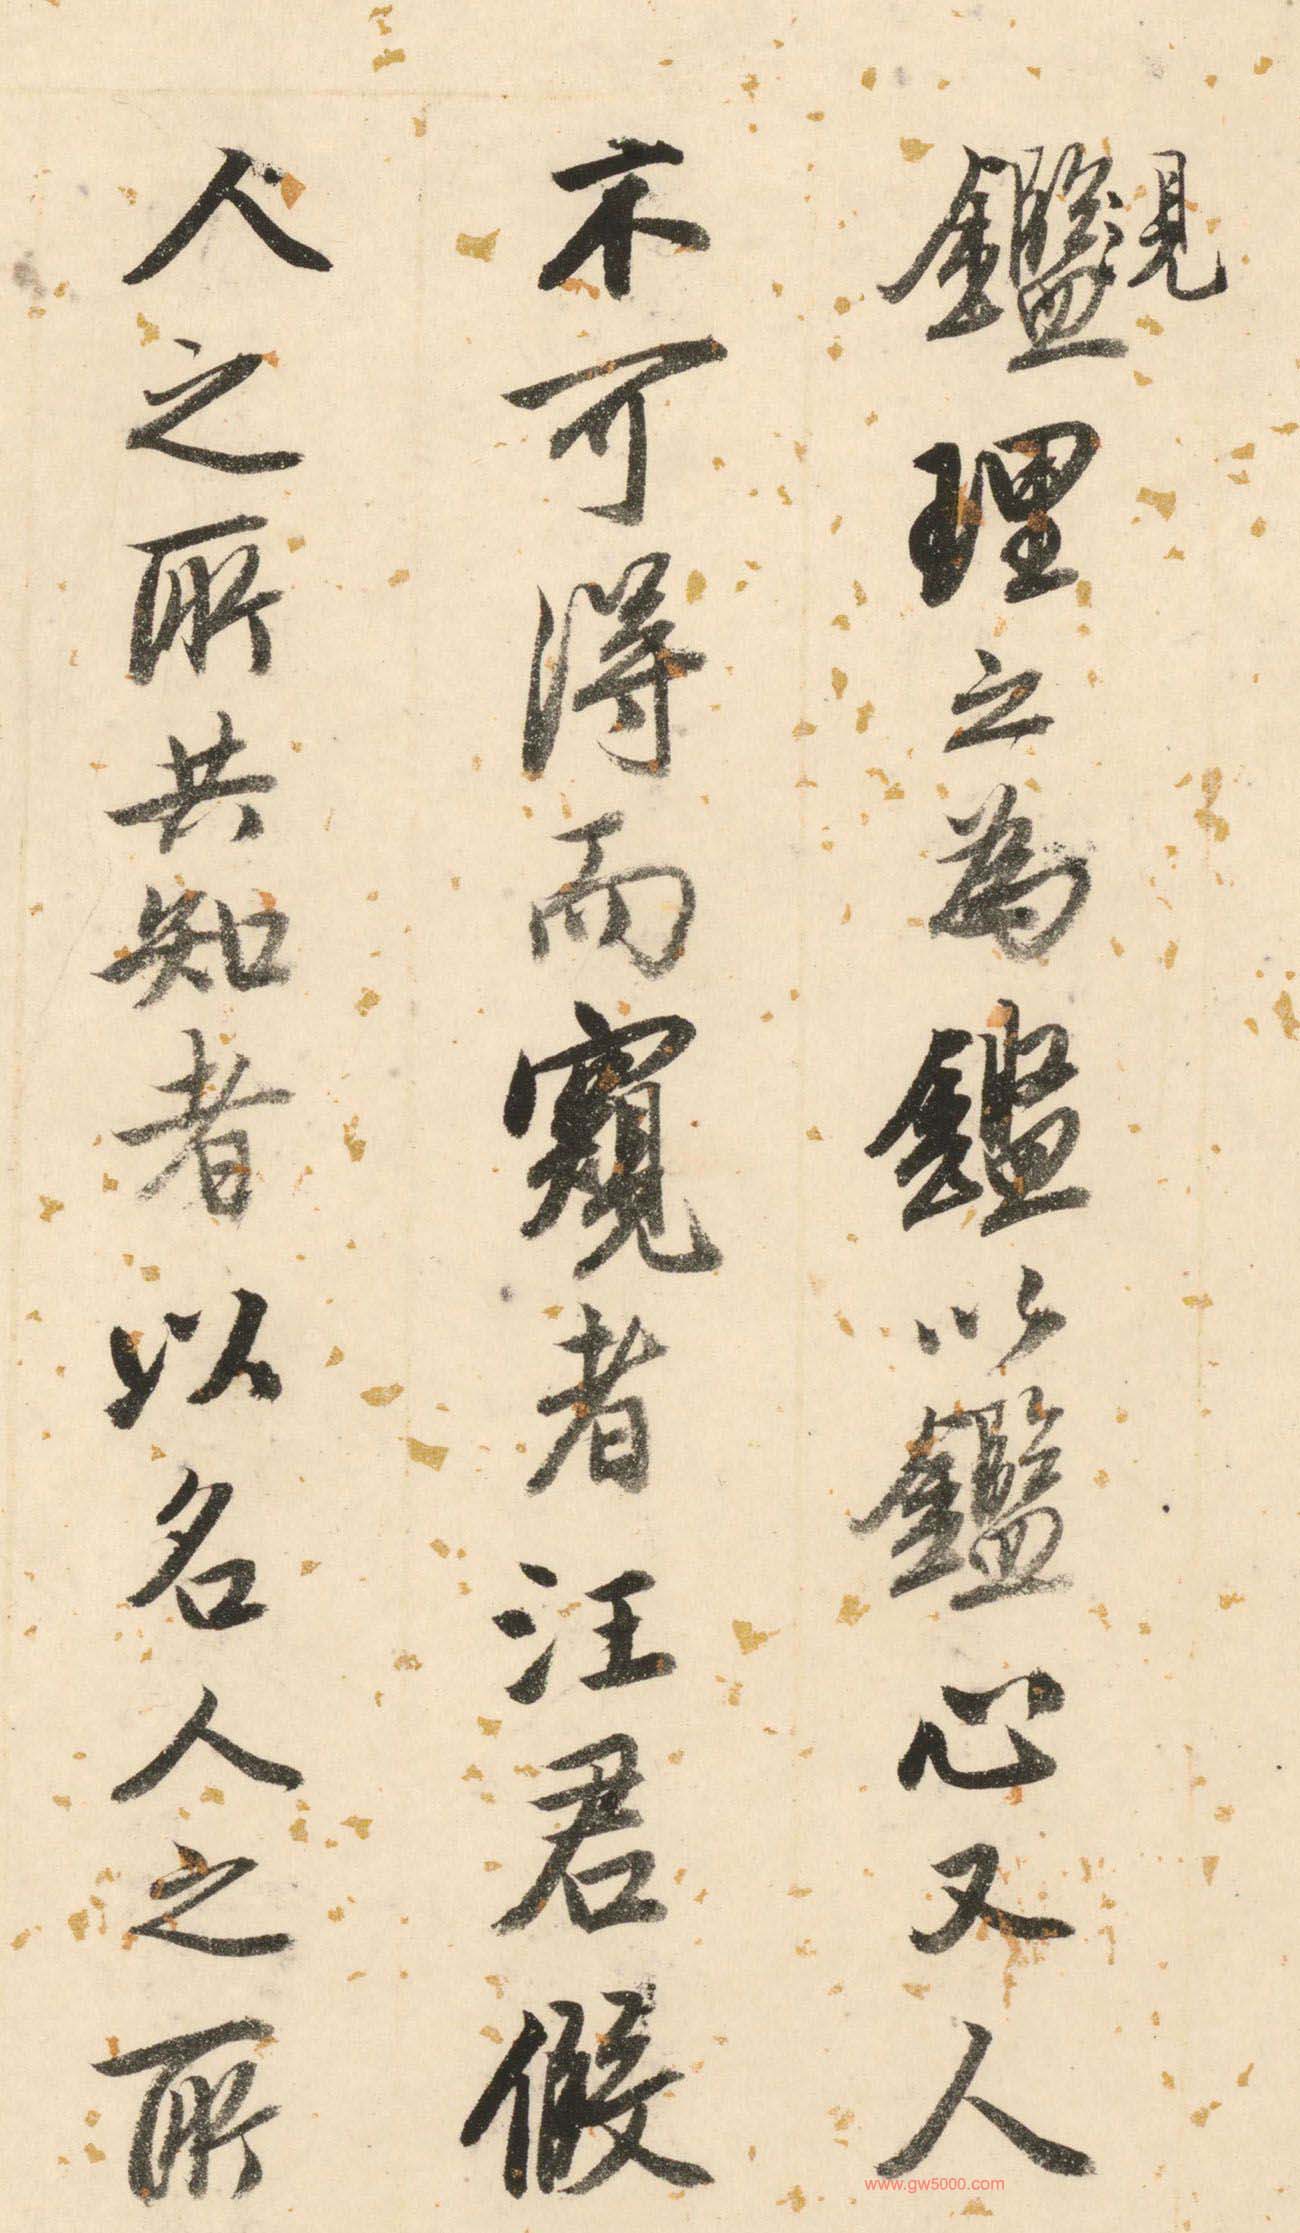 見
鑑理之為鑑以鑑心又人
不可得而窺者汪君假
人之所共知者以名人之所
www.gw5000.com